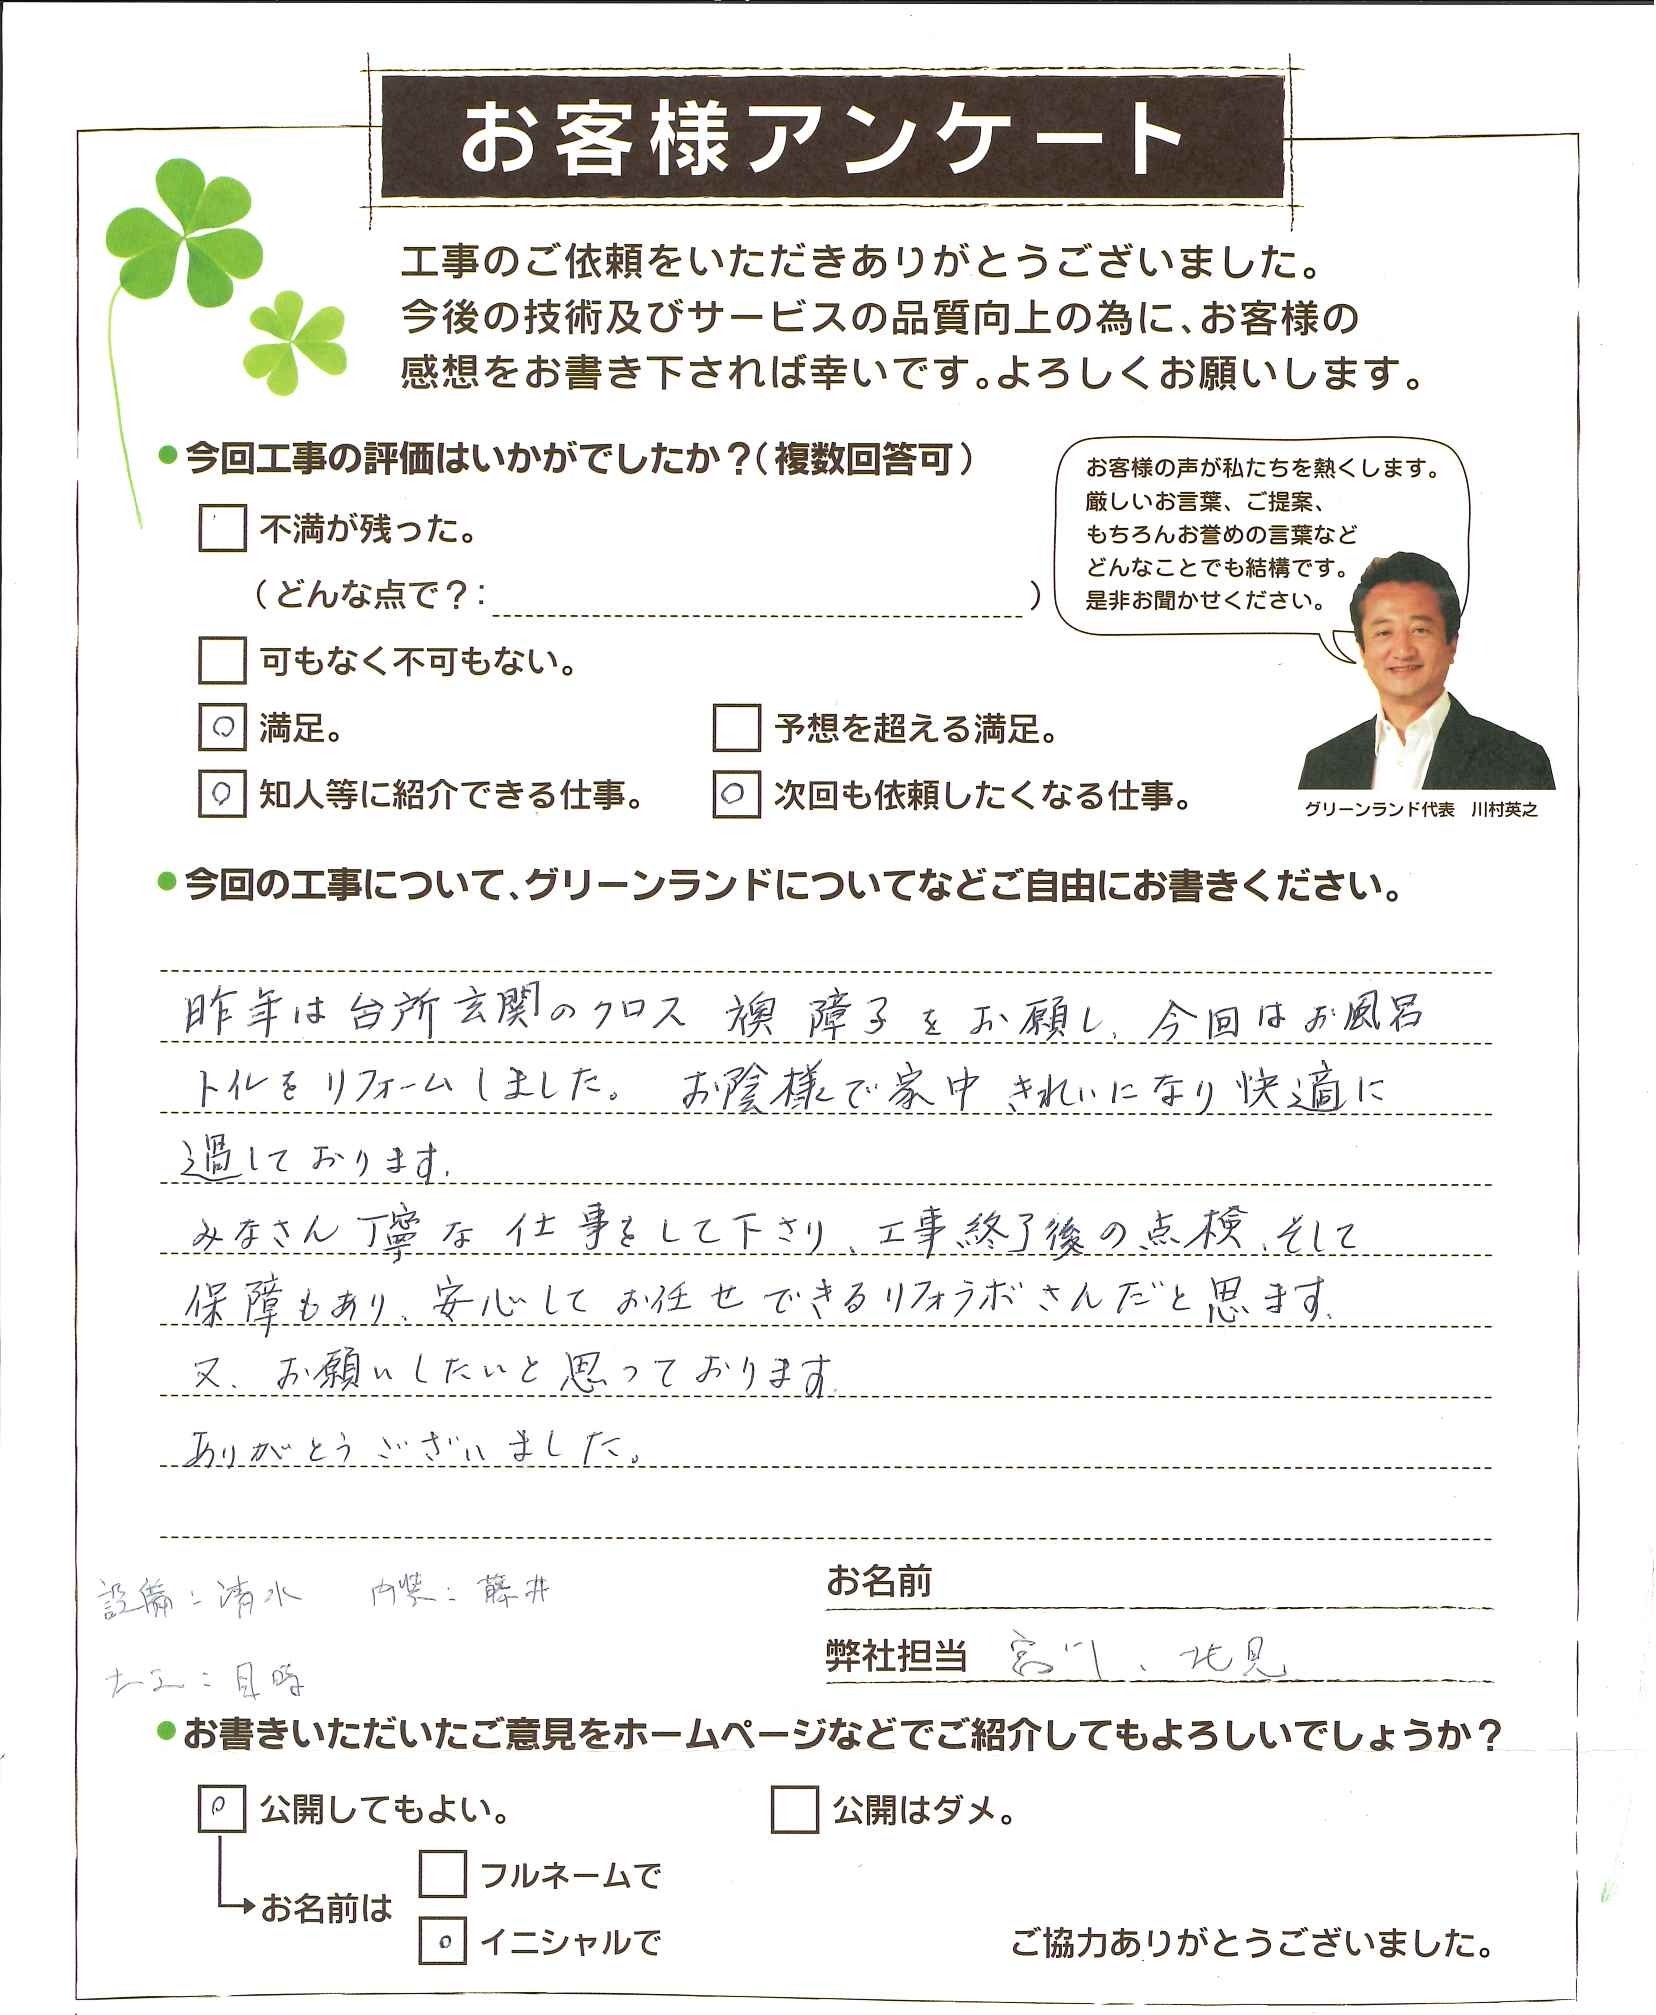 お客様アンケート
工事のご依頼をいただきありがとうございました。
今後の技術及びサービスの品質向上の為に、お客様の
感想をお書き下されば幸いです。よろしくお願いします。
●今回工事の評価はいかがでしたか？（複数回答可）
不満が残った。
（どんな点で？：　　　　）
可もなく不可もない。
○ 満足。
予想を超える満足。
○ 知人等に紹介できる仕事。
○ 次回も依頼したくなる仕事。
お客様の声が私たちを熱くします。
厳しいお言葉、ご提案、
もちろんお誉めの言葉など
どんなことでも結構です。
是非お聞かせください。
グリーンランド代表　川村英之
●今回の工事について、グリーンランドについてなどご自由にお書きください。
昨年は台所玄関のクロス 襖 障子をお願し、今回はお風呂
トイレをリフォームしました。 お陰様で家中きれいになり快適に
過しております。
みなさん丁寧な仕事をして下さり、工事終了後の点検、そして
保障もあり、安心してお任せできるリフォラボさんだと思ます。
又、お願いしたいと思っております。
ありがとうございました。
設備：清水　内装：藤井
大工：目時
お名前
弊社担当 宮川、北見
●お書きいただいたご意見をホームページなどでご紹介してもよろしいでしょうか？
○ 公開してもよい。
公開はダメ。
お名前は
フルネームで
○ イニシャルで
ご協力ありがとうございました。